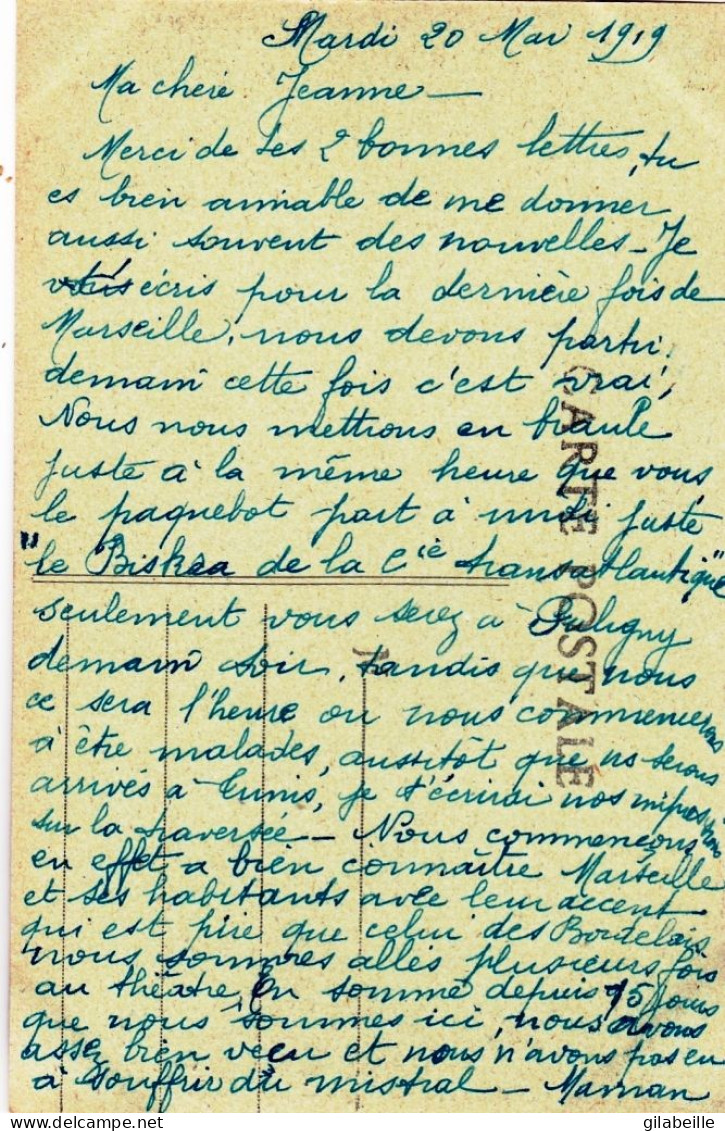 Mardi 20 Mai 1919
Ma chère Jeanne —
Merci de tes 2 bonnes lettres, tu
es bien aimable de me donner
aussi souvent des nouvelles — Je
écris pour la dernière fois de
Marseille, nous devons partir
demain cette fois c'est vrai,
Nous nous mettrons en branle
juste à la même heure que vous
le paquebot part à midi juste
"le Biskra de la Cie transatlantique"
seulement vous serez à Puligny
demain soir, tandis que nous
ce sera l'heure ou nous commencerons
à être malades, aussitôt que ns serons
arrivés à Tunis, je t'écrirai nos impressions
sur la traversée — Nous commençons
en effet a bien connaître Marseille
et ses habitants avec leur accent
qui est pire que celui des Bordelais
nous sommes allés plusieurs fois
au théâtre, En somme depuis 15 jours
que nous sommes ici, nous avons
assez bien vécu et nous n'avons pas eu
à souffrir du mistral — Maman
CARTE POSTALE
gilabeille